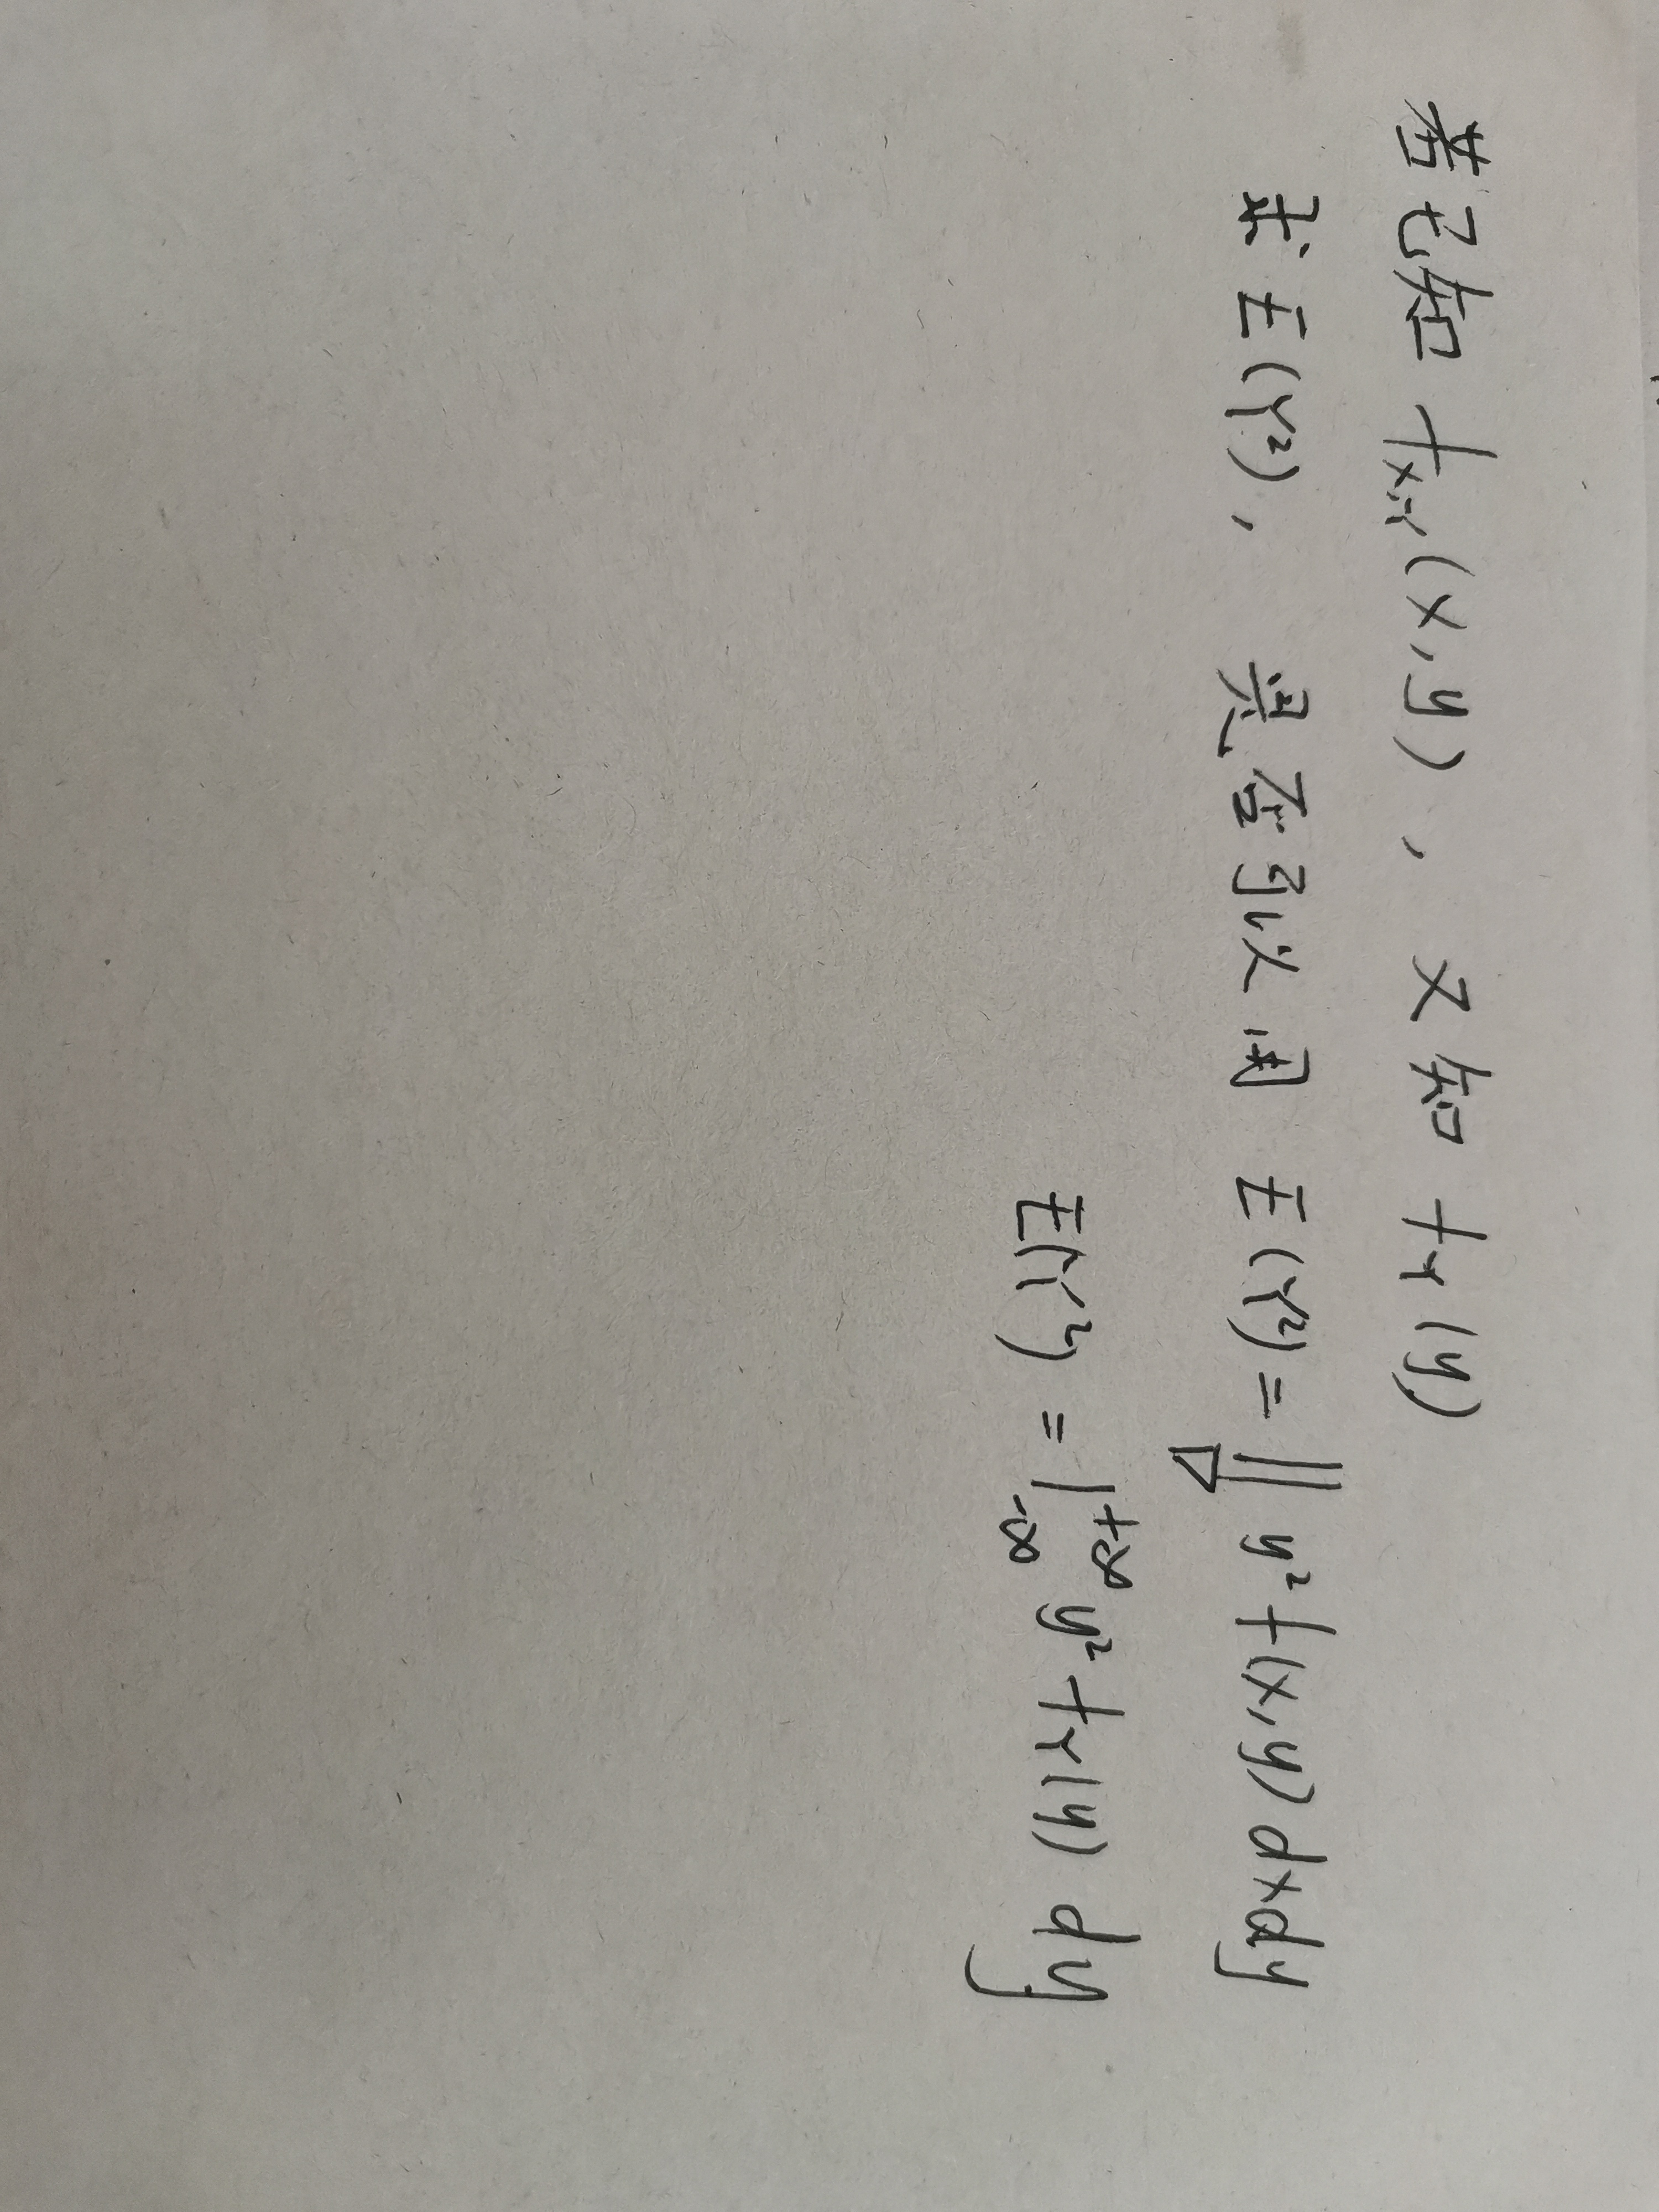 若已知 f_{X,Y}(x,y), 又知 f_Y(y)
求 E(Y²), 是否可以用 E(Y²) = ∬_D y² f(x,y) dxdy
E(Y²) = ∫_{-∞}^{+∞} y² f_Y(y) dy